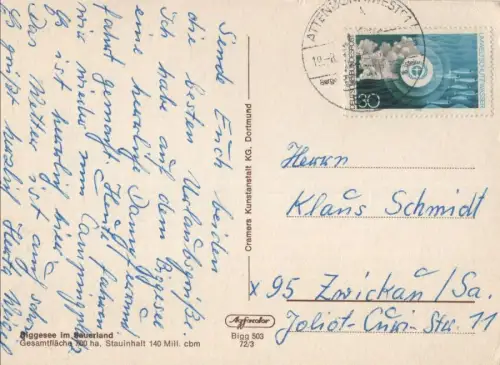 Send Euch beiden
die besten Urlaubsgrüße.
Ich habe auf dem Biggesee
eine herrliche Dampfer
fahrt gemacht. Heute fahren
wir wieder zum Campingpl.
Es ist herrlich hier
Das Wetter ist auch schön
Es grüßt herzlich
Biggesee im Sauerland
Gesamtfläche 700 ha, Stauinhalt 140 Mill. cbm
Cramers Kunstanstalt KG. Dortmund
Bigg 503
72/3
ATTENDORN
DEUTSCHE BUNDESPOST
30
Herrn
Klaus Schmidt
x 95 Zwickau/Sa.
Joliot-Curi-Str. 11